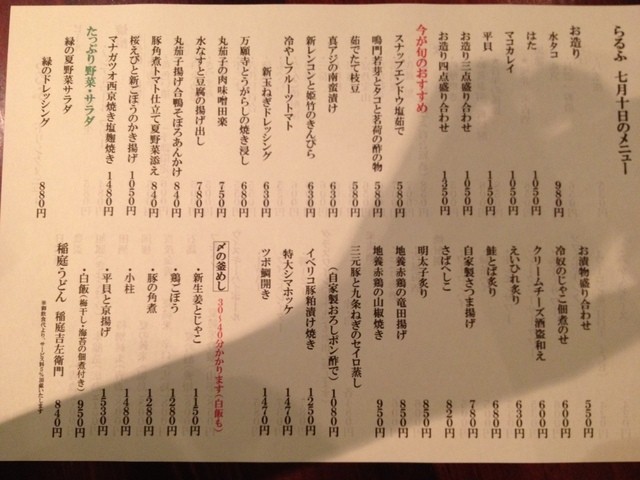 らるふ 七月十日のメニュー
お造り
水タコ 980円
はた 1050円
マコカレイ 1050円
平貝 1150円
お造り三点盛り合わせ 1050円
お造り四点盛り合わせ 1350円
今が旬のおすすめ
スナップエンドウ塩茹で 580円
鳴門若芽とタコと茗荷の酢の物 580円
茹でたて枝豆 580円
真アジの南蛮漬け 630円
新レンコンと姫竹のきんぴら 630円
冷やしフルーツトマト
新玉ねぎドレッシング 630円
万願寺とうがらしの焼き浸し 680円
丸茄子の肉味噌田楽 750円
水なすと豆腐の揚げ出し 780円
丸茄子揚げ合鴨そぼろあんかけ 840円
豚角煮トマト仕立て夏野菜添え 840円
桜えびと新ごぼうのかき揚げ 1050円
マナガツオ西京焼き塩麹焼き 1480円
たっぷり野菜・サラダ
緑の夏野菜サラダ
緑のドレッシング 880円
お漬物盛り合わせ 550円
冷奴のじゃこ佃煮のせ 600円
クリームチーズ酒盗和え 600円
えいひれ炙り 630円
鮭とば炙り 680円
自家製さつま揚げ 780円
さばへしこ 820円
明太子炙り 850円
地養赤鶏の竜田揚げ 850円
地養赤鶏の山椒焼き 950円
三元豚と九条ねぎのセイロ蒸し
(自家製おろしポン酢で) 1080円
イベリコ豚粕漬け焼き 1250円
特大シマホッケ 1470円
ツボ鯛開き 1470円
〆の釜めし 30~40分かかります(白飯も)
・新生姜とじゃこ 1150円
・鶏ごぼう 1280円
・豚の角煮 1280円
・小柱 1480円
・平貝と京揚げ 1530円
・白飯(梅干し・海苔の佃煮付き) 950円
稲庭うどん 稲庭吉左衛門 840円